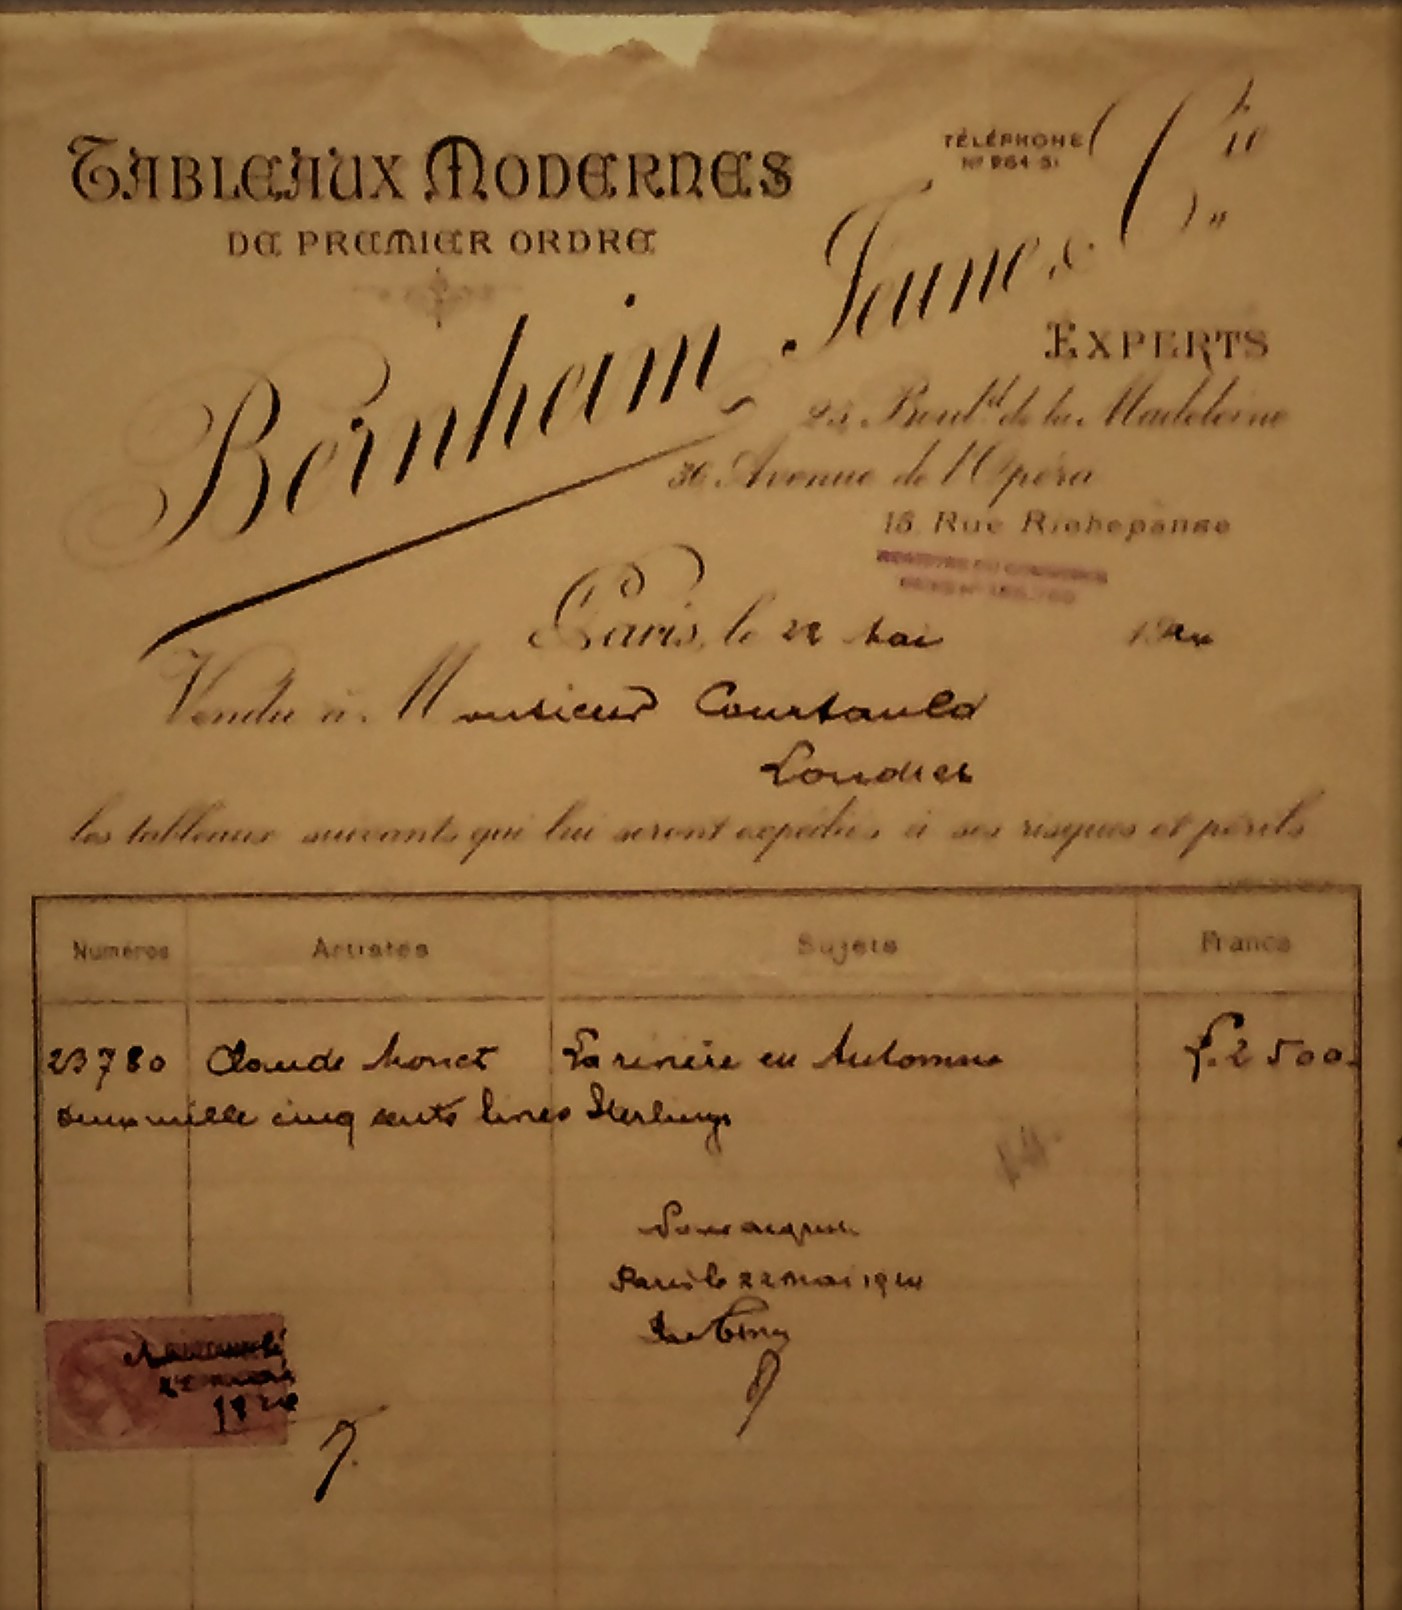 TABLEAUX MODERNES
DE PREMIER ORDRE
TÉLÉPHONE
Bernheim Jeune & Cie
EXPERTS
25, Boul.d de la Madeleine
36 Avenue de l'Opéra
15, Rue Richepanse
REGISTRE DU COMMERCE
Paris, le 22 Mai 1924
Vendu à Monsieur Courtauld
Londres
les tableaux suivants qui lui seront expédiés à ses risques et périls
Numéros Artistes Sujets Francs
23780 Claude Monet La rivière en Automne £. 2500.
deux mille cinq cents livres Sterlings
Pour acquit
Paris le 22 mai 1924